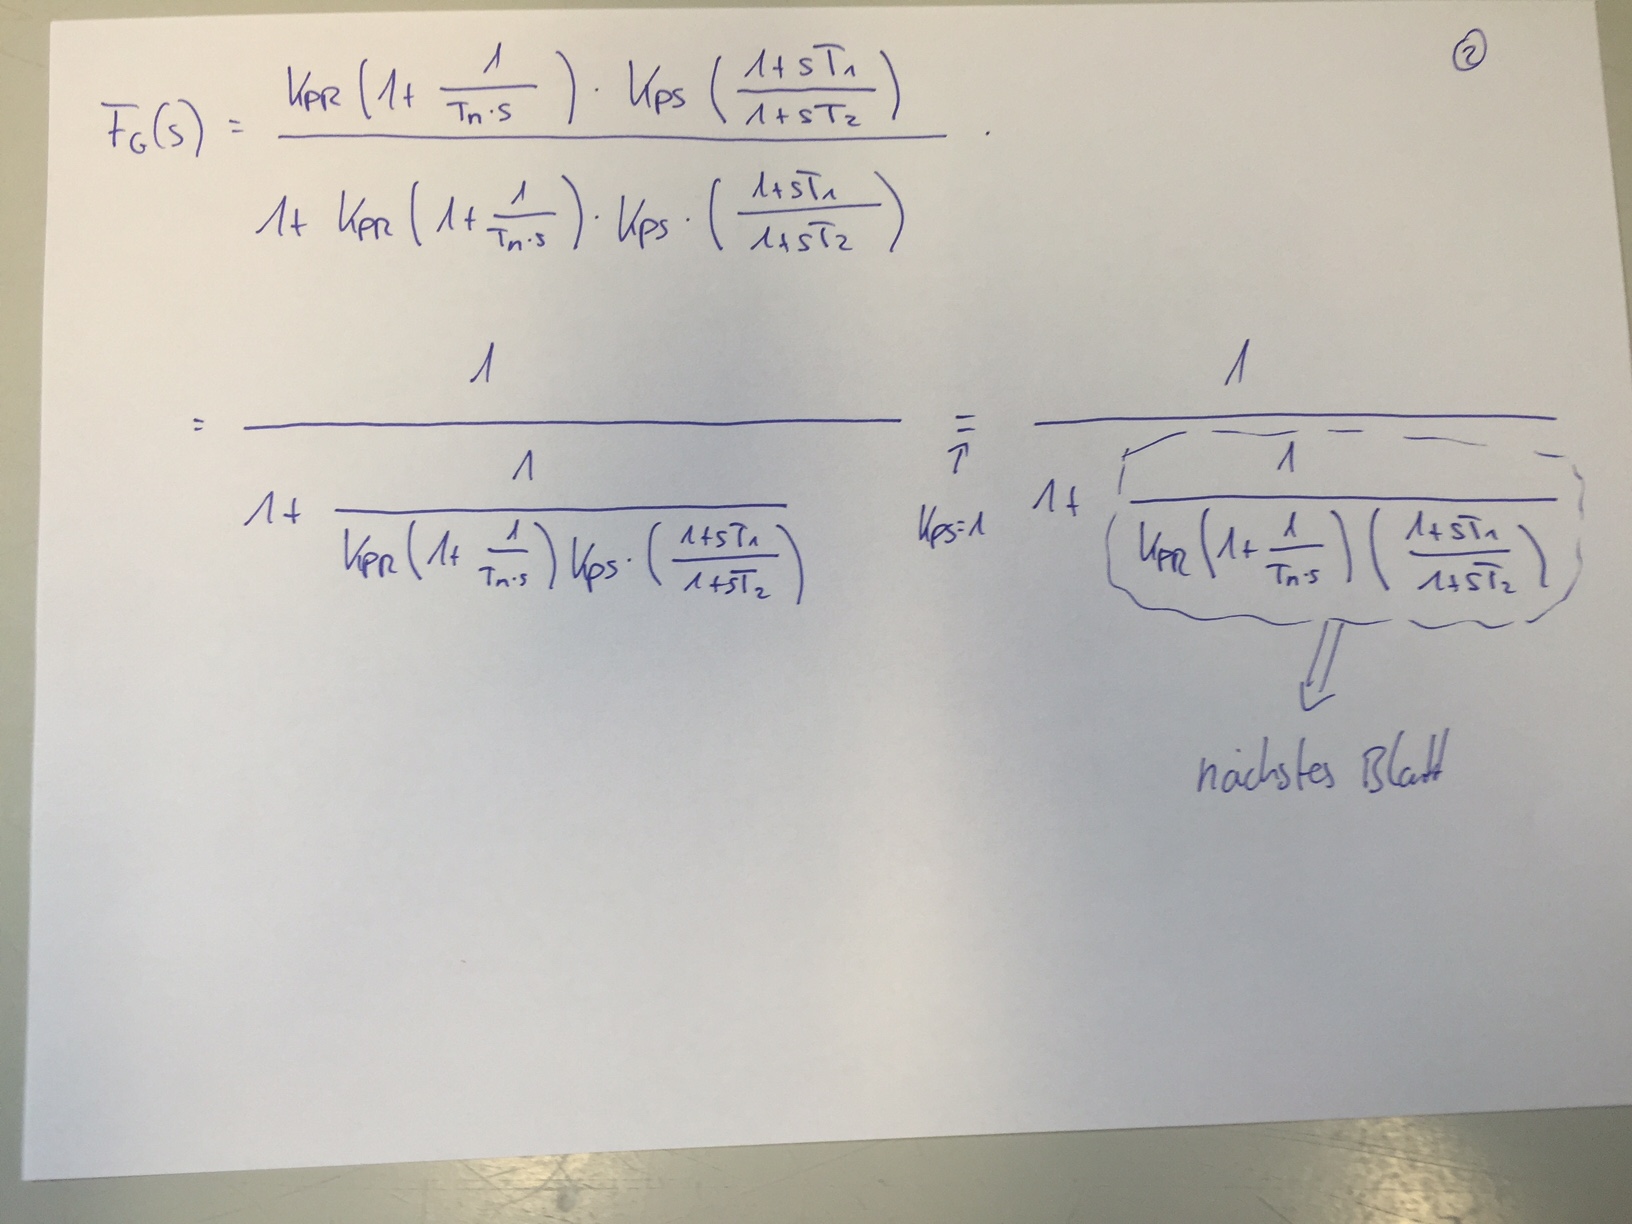 ②
F_G(s) = \frac{K_{PR}(1+\frac{1}{T_n·s})·K_{PS}(\frac{1+sT_1}{1+sT_2})}{1+K_{PR}(1+\frac{1}{T_n·s})·K_{PS}·(\frac{1+sT_1}{1+sT_2})} .
= \frac{1}{1+\frac{1}{K_{PR}(1+\frac{1}{T_n·s})K_{PS}·(\frac{1+sT_1}{1+sT_2})}} = \frac{1}{1+\frac{1}{K_{PR}(1+\frac{1}{T_n·s})(\frac{1+sT_1}{1+sT_2})}}
↑
K_{PS}=1
⇓
nächstes Blatt